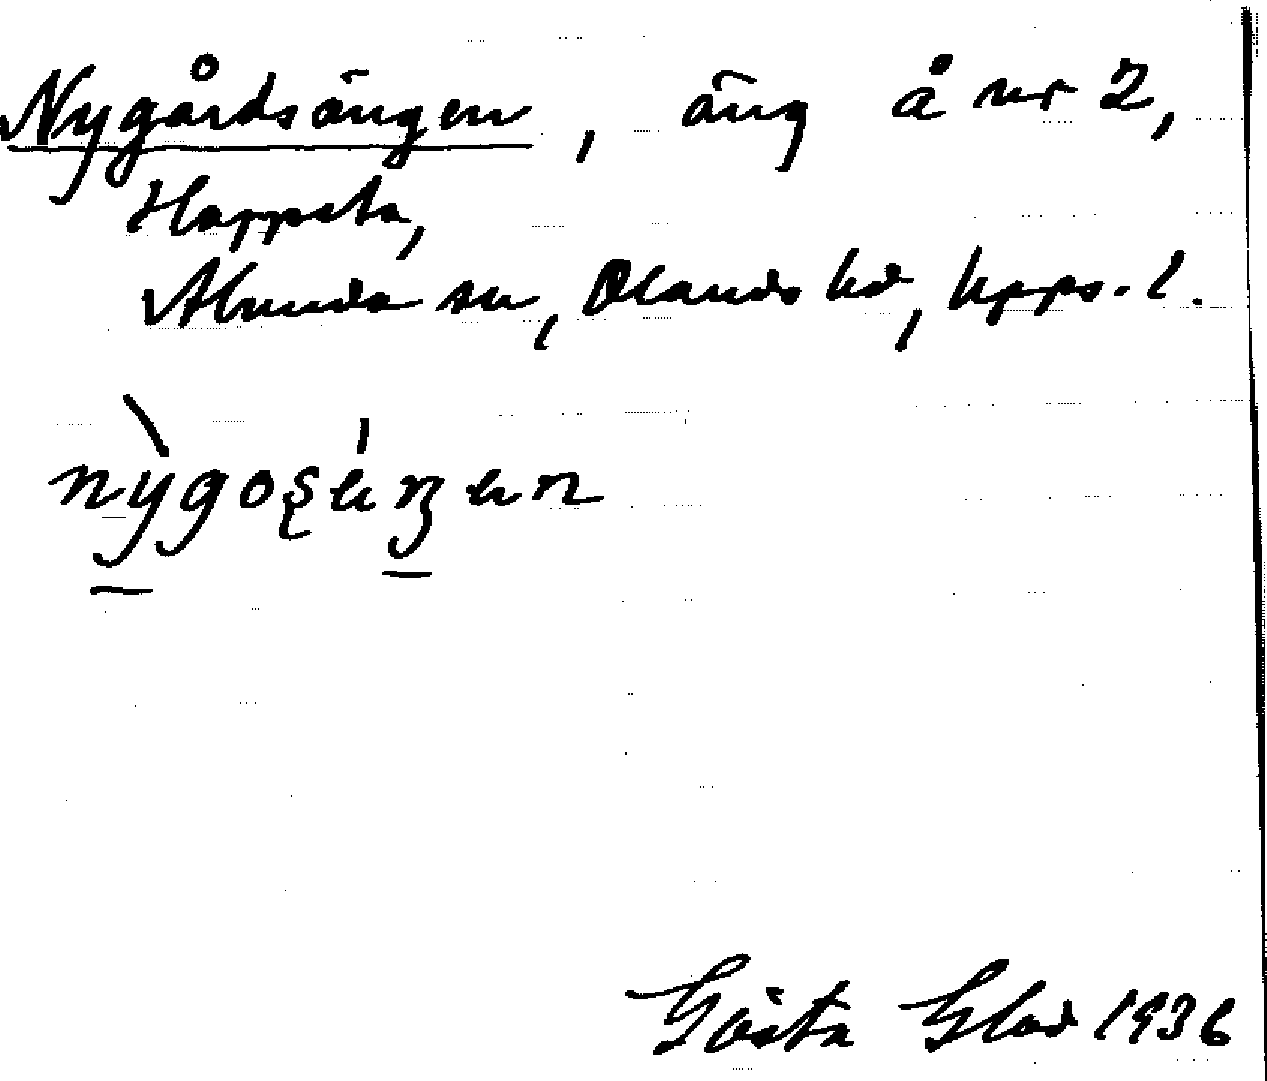 Nygårdsängen, äng å nr 2,
Happsta,
Alunda sn, Olands hd, Upps. l.
Gösta Glad 1936